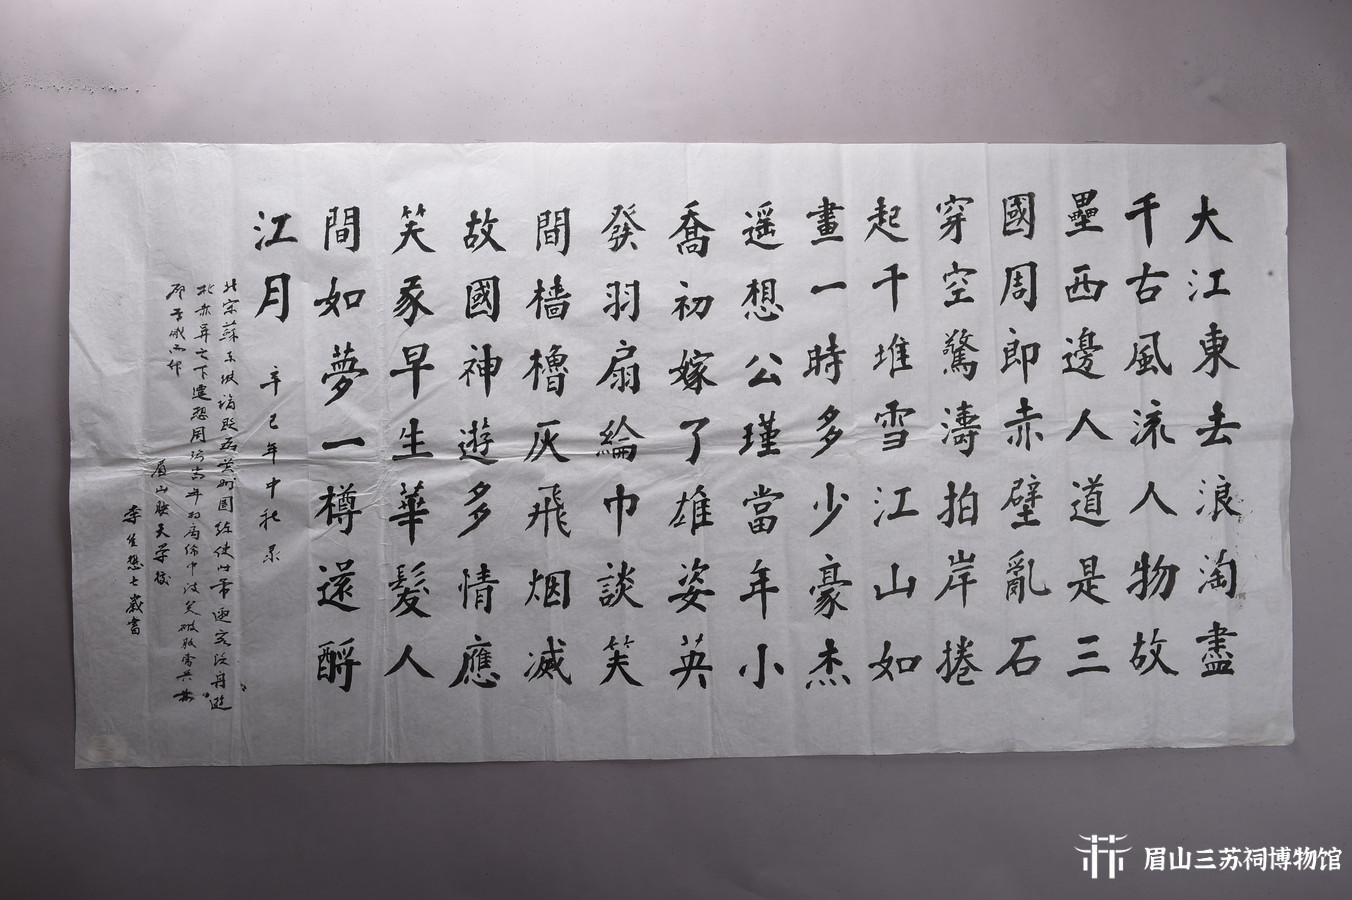 大江東去浪淘盡
千古風流人物故
壘西邊人道是三
國周郎赤壁亂石
穿空驚濤拍岸捲
起千堆雪江山如
畫一時多少豪杰
遥想公瑾當年小
喬初嫁了雄姿英
發羽扇綸巾談笑
間檣櫓灰飛烟滅
故國神遊多情應
笑豕早生華髮人
間如夢一樽還酹
江月
辛巳年中秋录
北宋蘇东坡謫貶为黄州团练使时常邀客泛舟遊
於赤壁之下遥想周
眉山联天学校
李 七歲書
眉山三苏祠博物馆